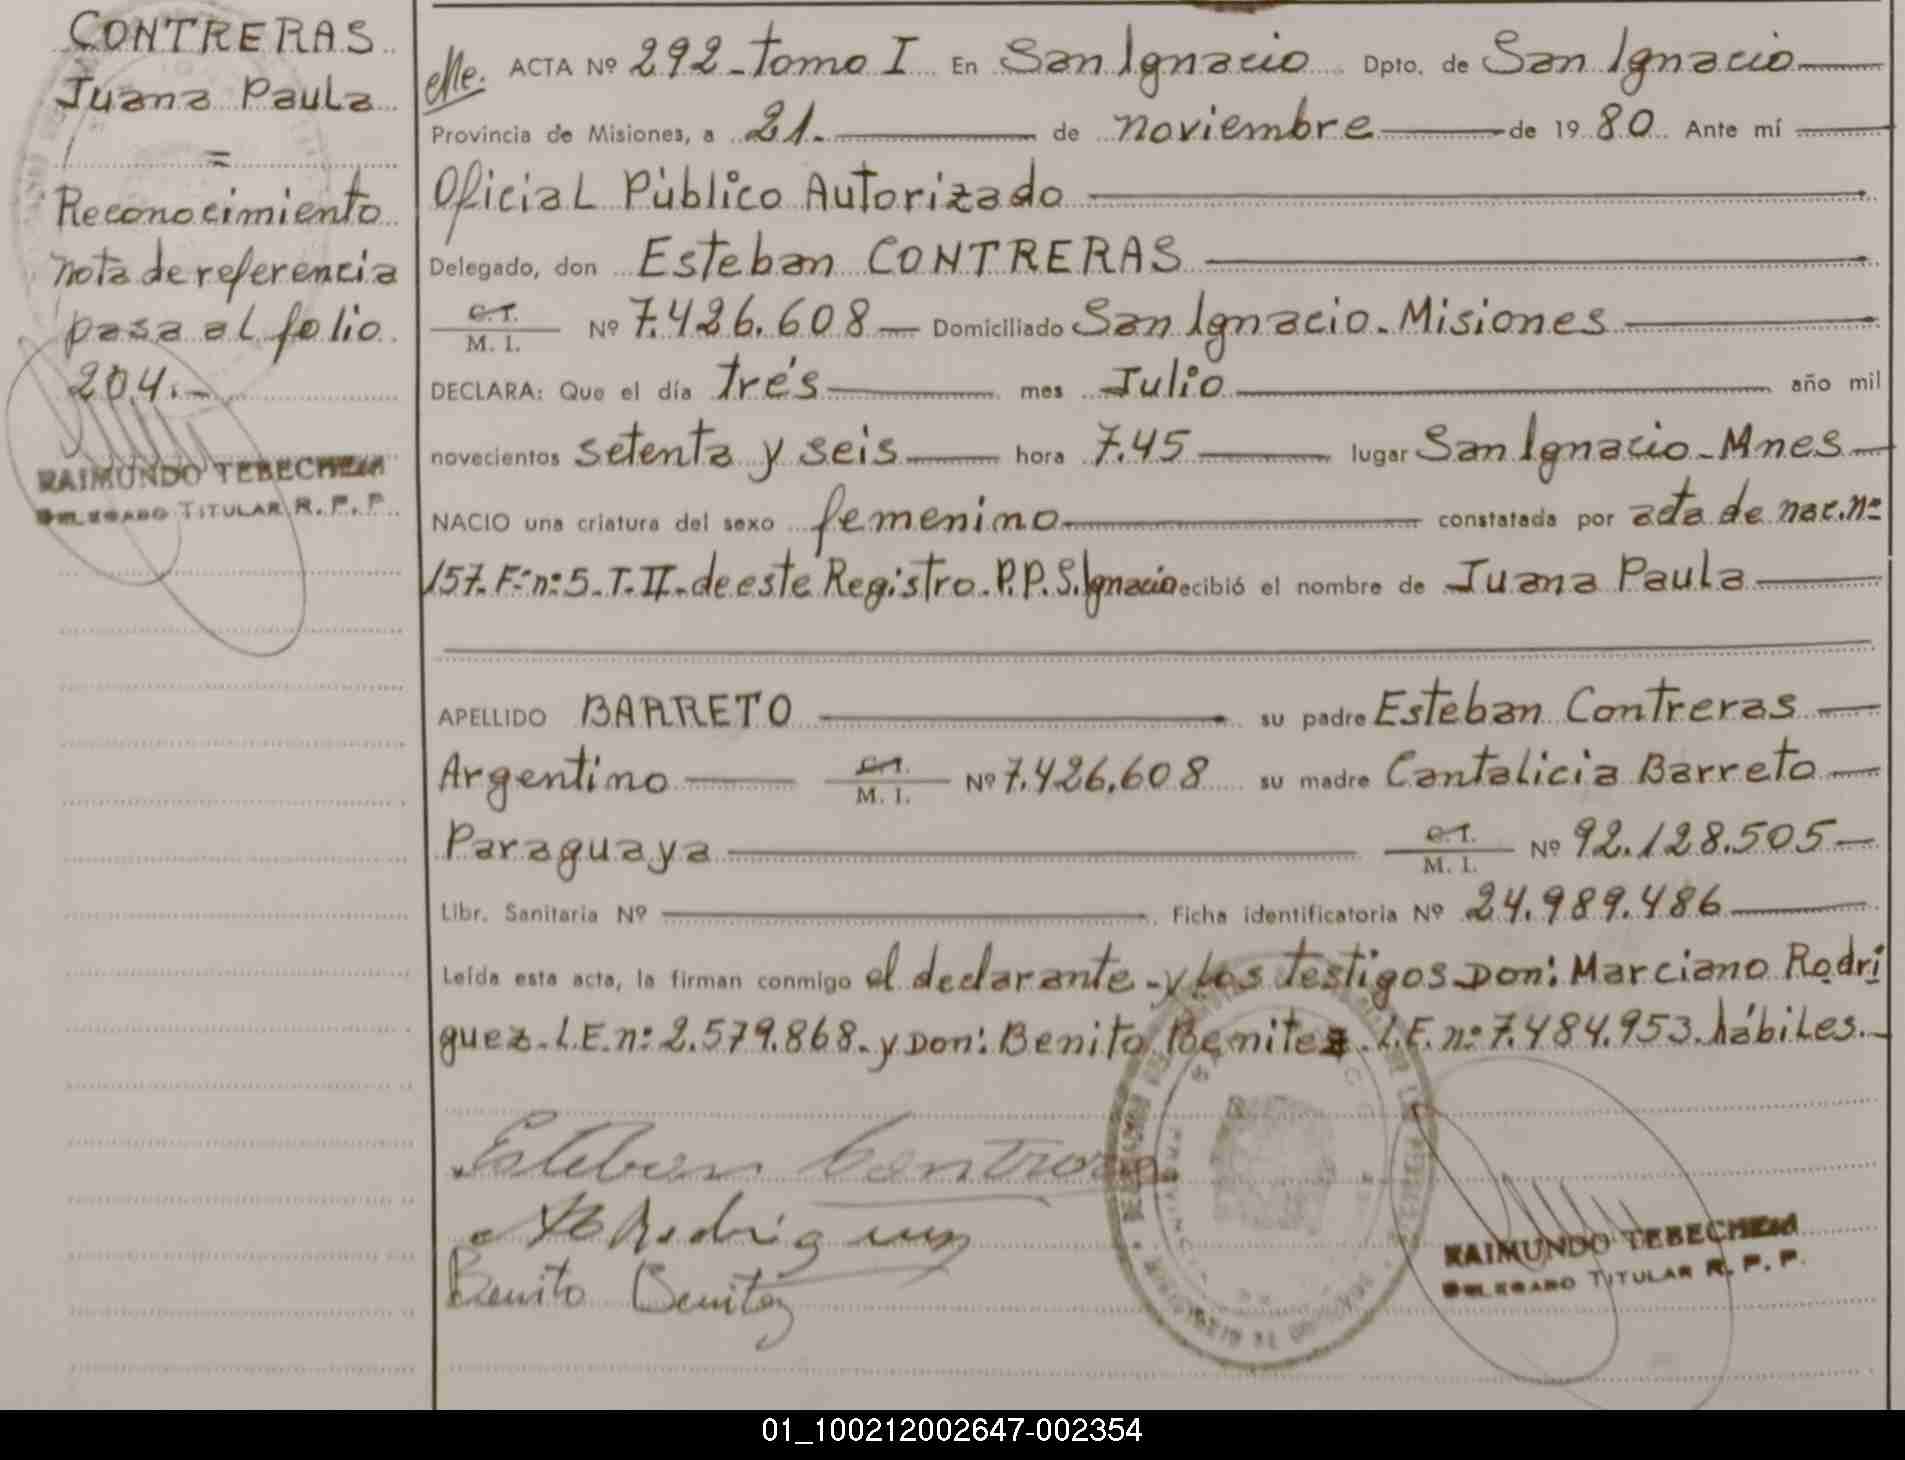 CONTRERAS
Juana Paula
=
Reconocimiento
nota de referencia
pasa al folio
204.-
RAIMUNDO TEBECHEM
DELEGADO TITULAR R. P. P.
ACTA Nº 292-tomo I En San Ignacio Dpto. de San Ignacio
Provincia de Misiones, a 21. de noviembre de 1980 Ante mí
Oficial Público Autorizado
Delegado, don Esteban CONTRERAS
C.I.
M. I. Nº 7.426.608 Domiciliado San Ignacio-Misiones
DECLARA: Que el día trés mes Julio año mil
novecientos setenta y seis hora 7.45 lugar San Ignacio-Mnes
NACIO una criatura del sexo femenino constatada por acta de nac.nº
157.Fº nº 5.T.II.de este Registro.P.P.S.Ignacio ecibió el nombre de Juana Paula
APELLIDO BARRETO su padre Esteban Contreras
Argentino C.I.
M. I. Nº 7.426.608 su madre Cantalicia Barreto
Paraguaya C.I.
M. I. Nº 92.128.505
Libr. Sanitaria Nº Ficha identificatoria Nº 24.989.486
Leída esta acta, la firman conmigo el declarante-y los testigos Don: Marciano Rodri
guez.L.E.nº 2.579.868.y Don: Benito Benitez.L.E.nº 7.484.953.hábiles.
Esteban Contreras
Benito Benitez
RAIMUNDO TEBECHEM
DELEGADO TITULAR R. P. P.
01_100212002647-002354